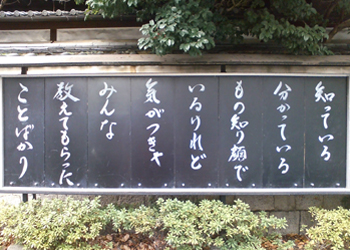 知っている
分かっている
もの知り顔で
いるけれど
気がつきゃ
みんな
教えてもらった
ことばかり